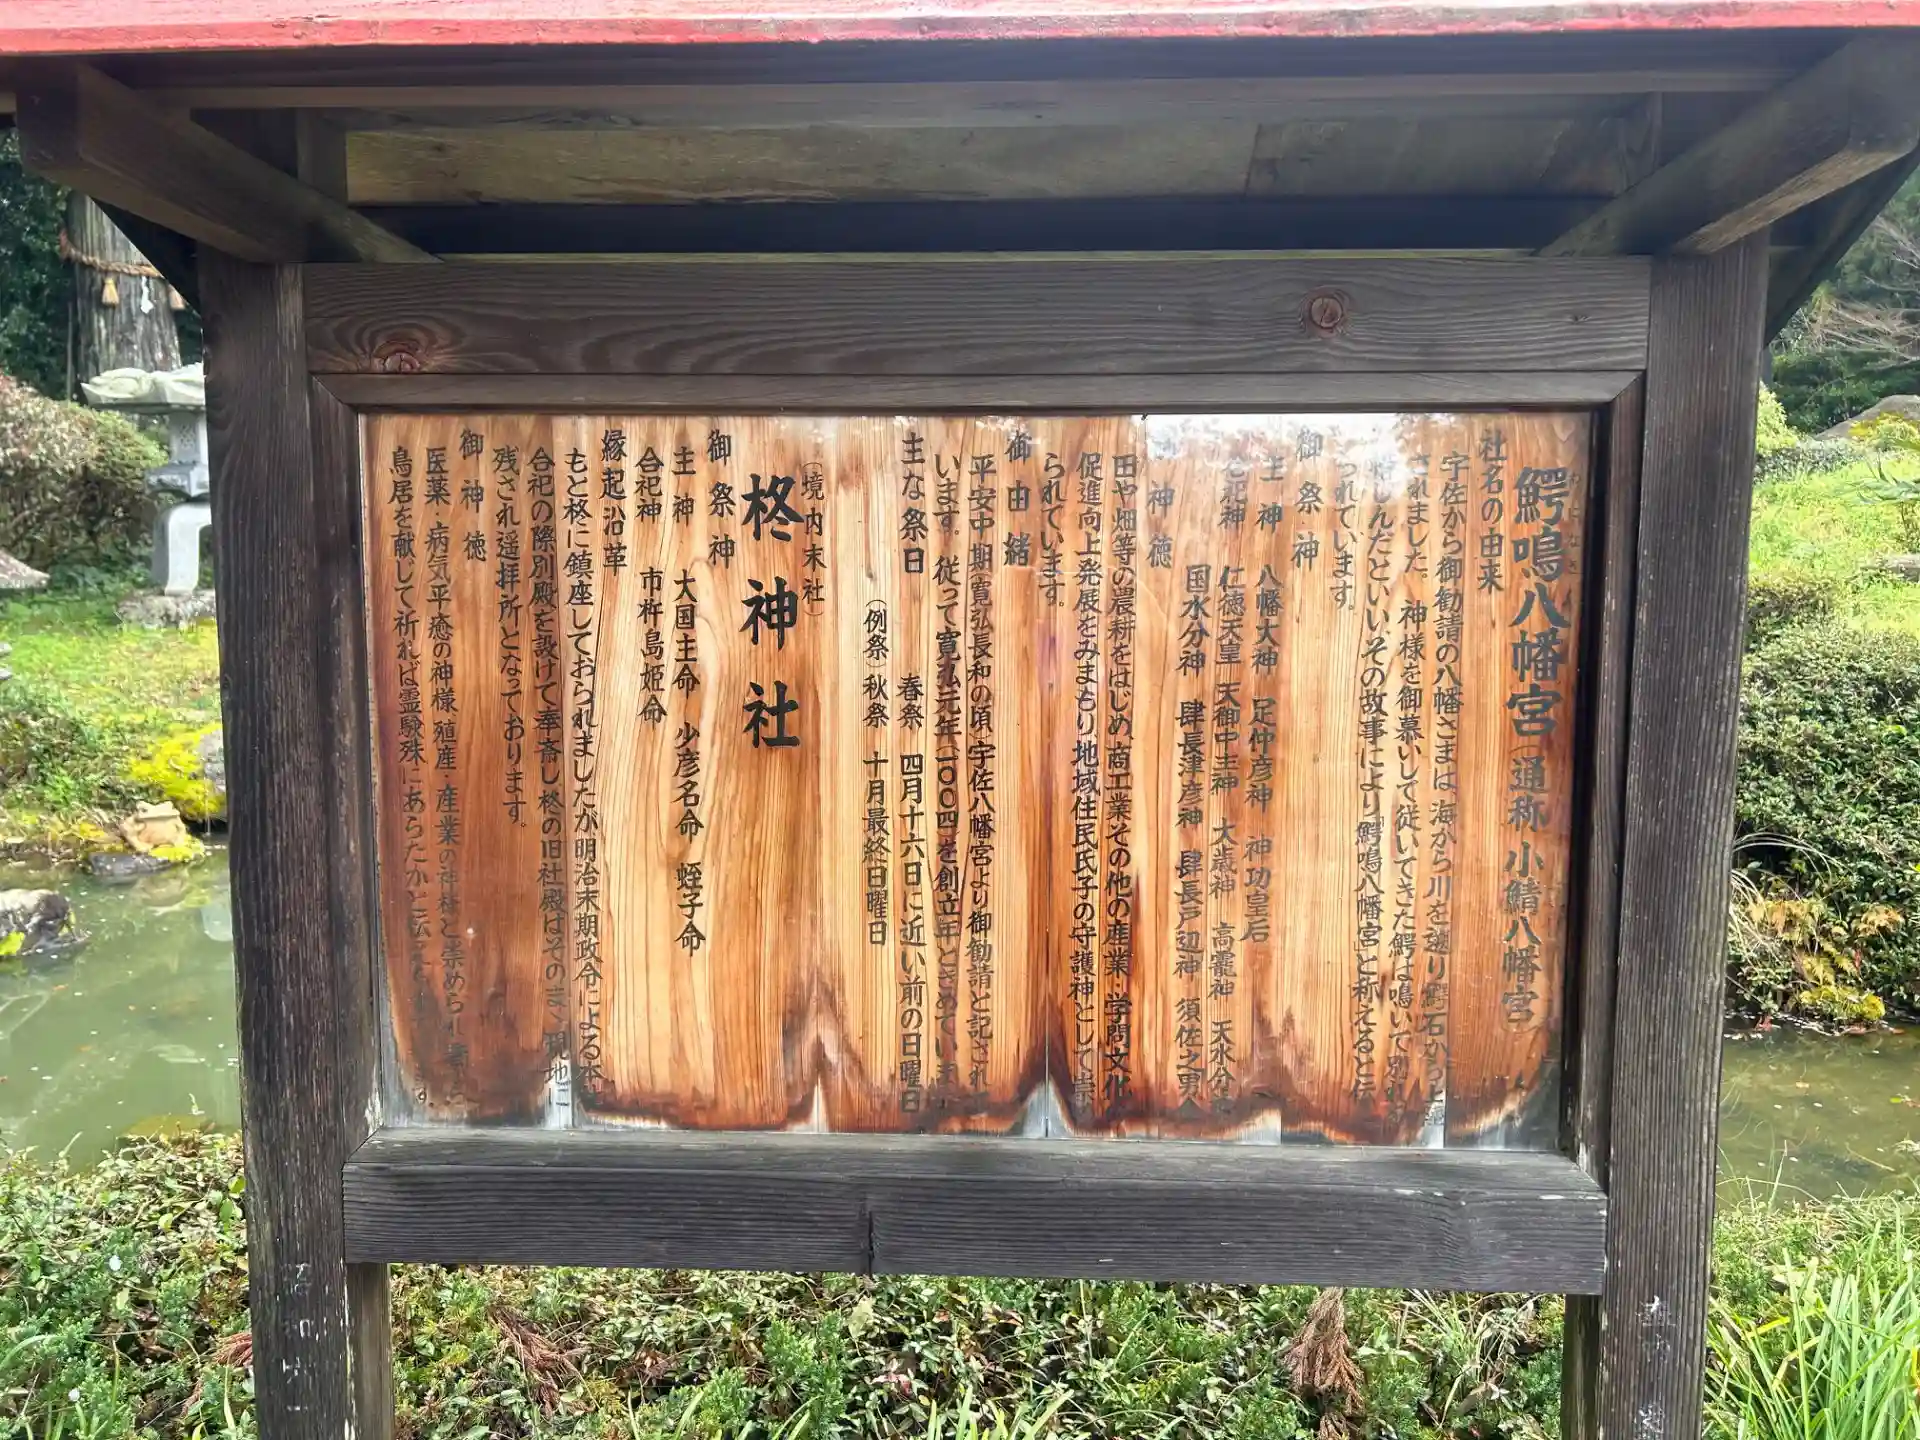 鰐鳴八幡宮(通称 小鯖八幡宮)
社名の由来
宇佐から御勧請の八幡さまは、海から川を遡り鰐石から上
されました。神様を御慕いして従いてきた鰐は鳴いて別れを
しんだといい、その故事により「鰐鳴八幡宮」と称えると伝
られています。
御祭神
主神 八幡大神 足仲彦神 神功皇后
合祀神 仁徳天皇 天御中主神 大歳神 高龗神 天水分
国水分神 肆長津彦神 肆長戸辺神 須佐之男命
神徳
田や畑等の農耕をはじめ、商工業その他の産業・学問、文化
促進向上発展をみまもり、地域住民氏子の守護神として崇
られています。
御由緒
平安中期(寛弘、長和の頃)宇佐八幡宮より御勧請と記され
います。従って寛弘元年(一〇〇四)を創立年ときめていま
主な祭日 春祭 四月十六日に近い前の日曜日
(例祭)秋祭 十月最終日曜日
(境内末社)
柊神社
御祭神
主神 大国主命 少彦名命 蛭子命
合祀神 市杵島姫命
縁起沿革
もと柊に鎮座しておられましたが明治末期政令による本
合祀の際別殿を設けて奉斎し柊の旧社殿はそのまゝ現地に
残され遥拝所となっております。
御神徳
医薬・病気平癒の神様、殖産・産業の神様と崇められ
鳥居を献じて祈れば霊験殊にあらたかと伝え